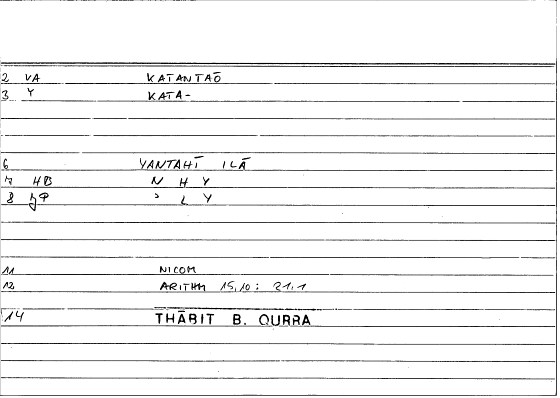 2 VA KATANTAŌ
3 Y KATA-
6 YANTAHĪ ILĀ
7 HB N H Y
8 ʾ L Y
11 NICOM
12 ARITHM 15,10 : 21,1
14 THĀBIT B. QURRA